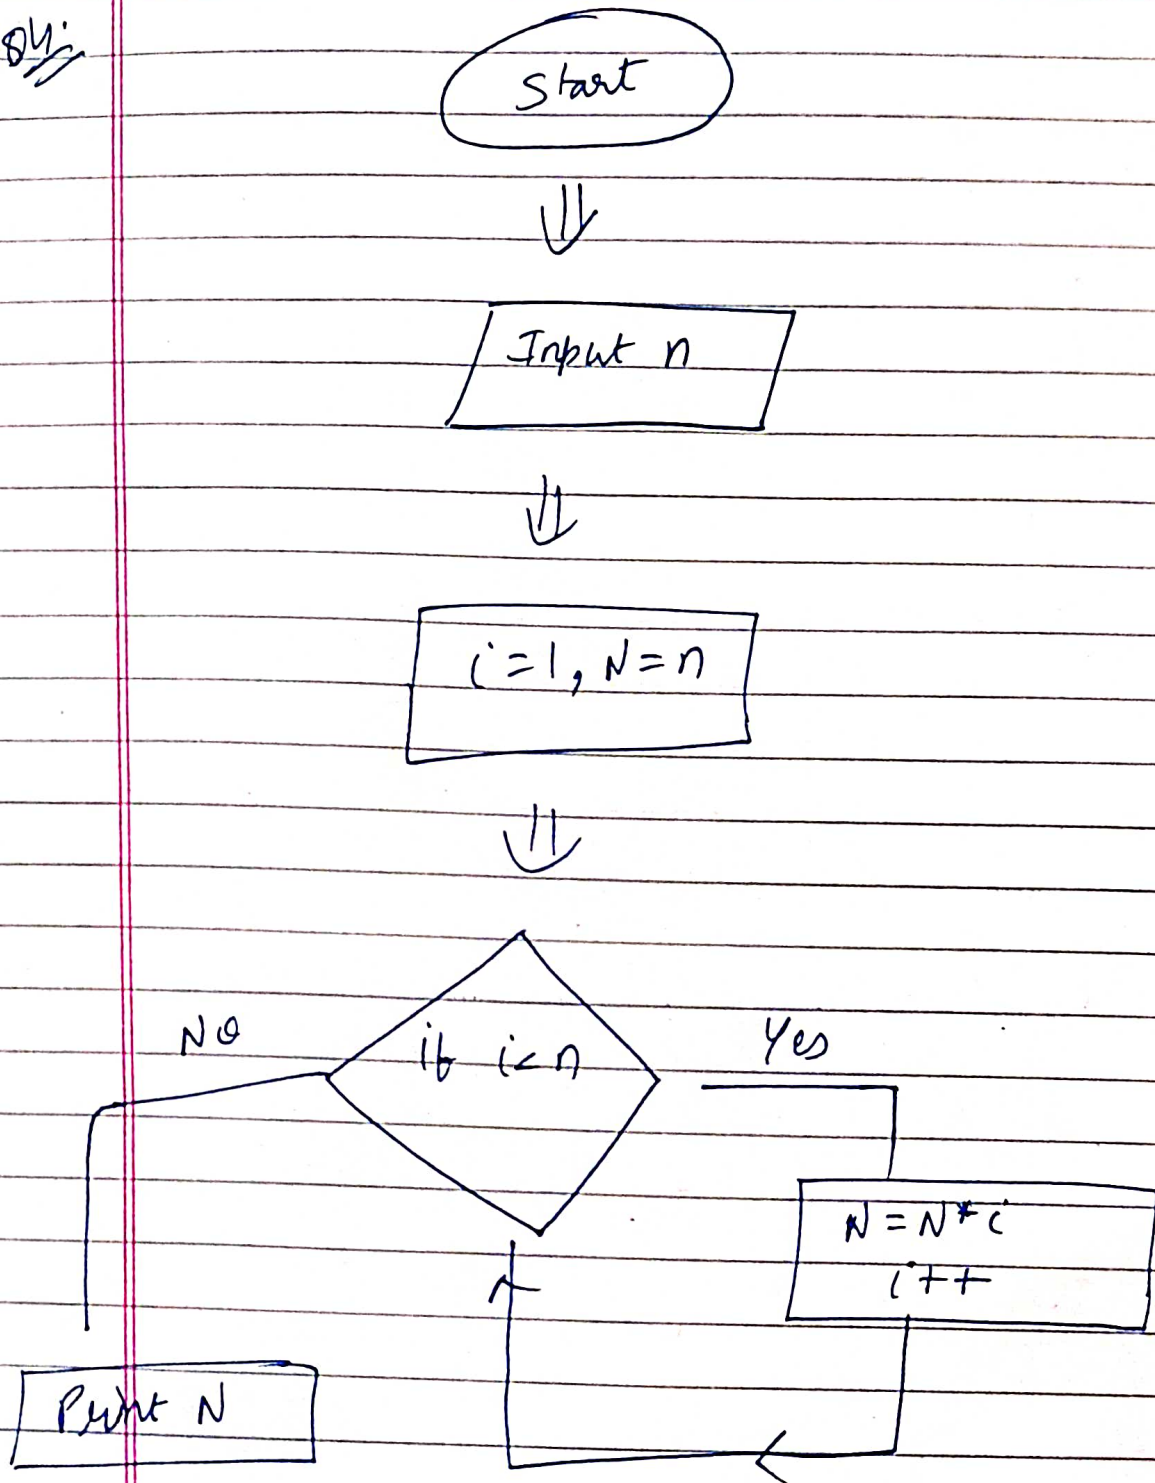 Start
Input n
i=1, N=n
if i<n
No
Yes
N=N*i
i++
Print N